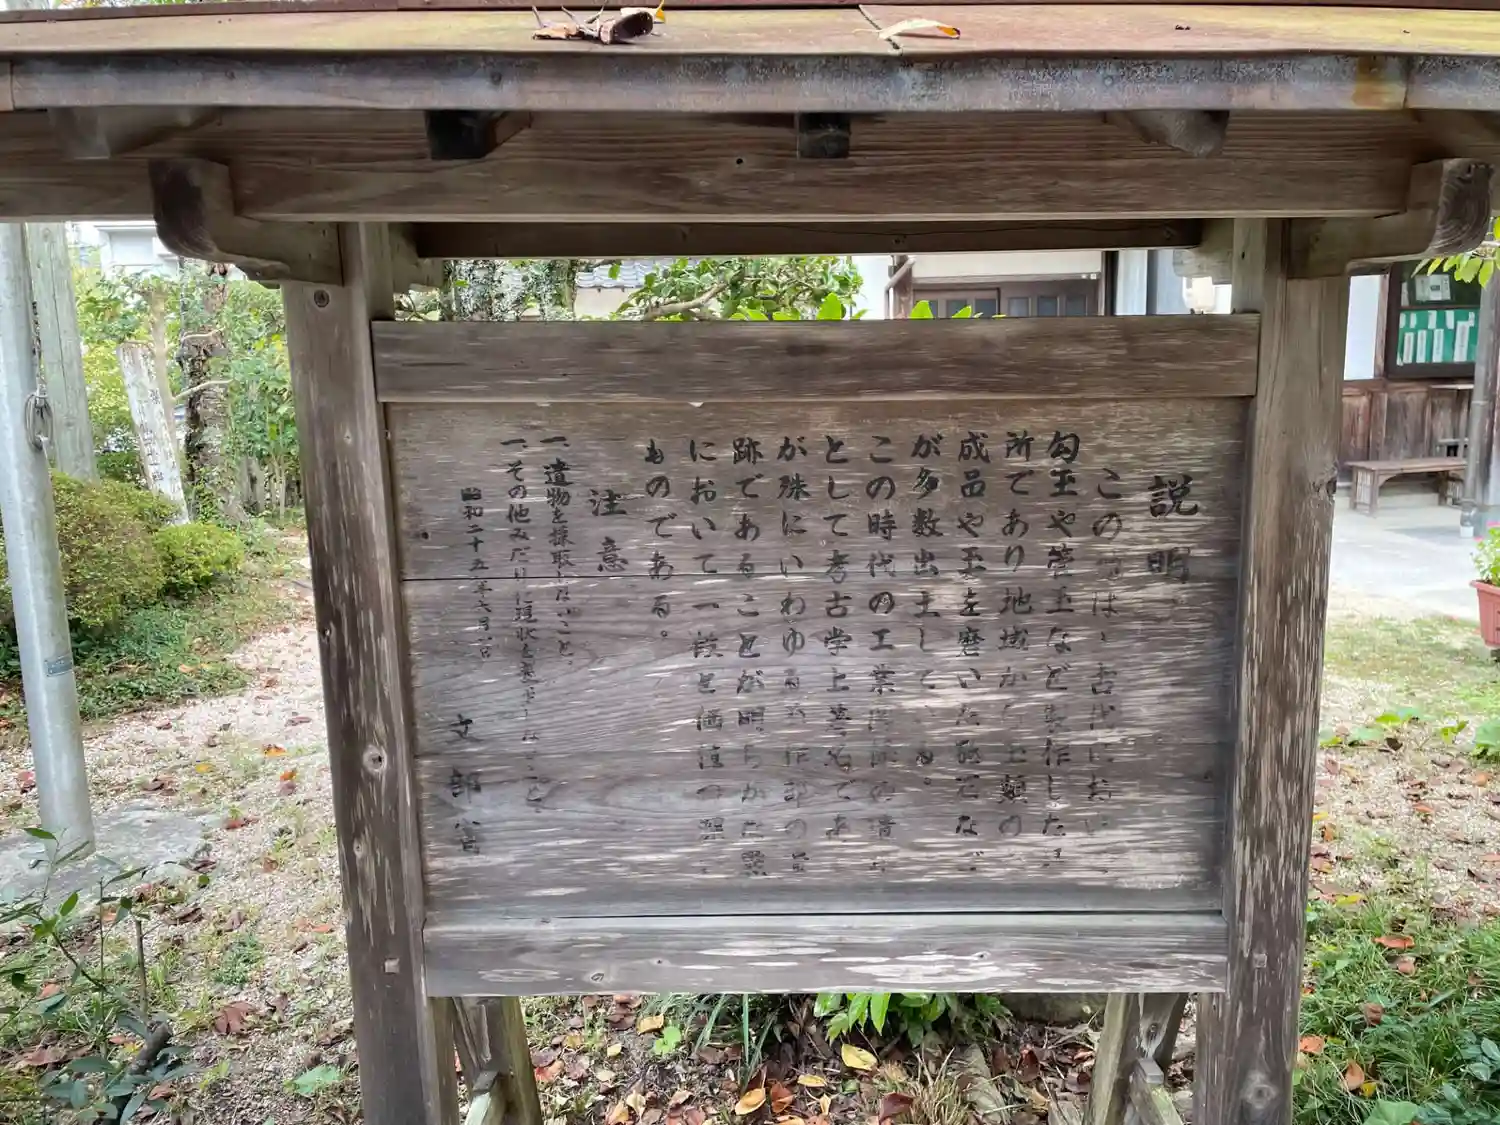 説明
この は、古代におい
勾玉や管玉など製作した
所であり地域から玉類の
成品や玉を磨いた砥石など
が多数出土している。
この時代の工業 の遺
として考古学上著名であ
が殊にいわゆる玉作部の
跡であることが明らかな
において一段と価値の
ものである。
注意
一、遺物を採取しないこと。
一、その他みだりに現状を変更しないこと
昭和二十五年 月 日
文部省